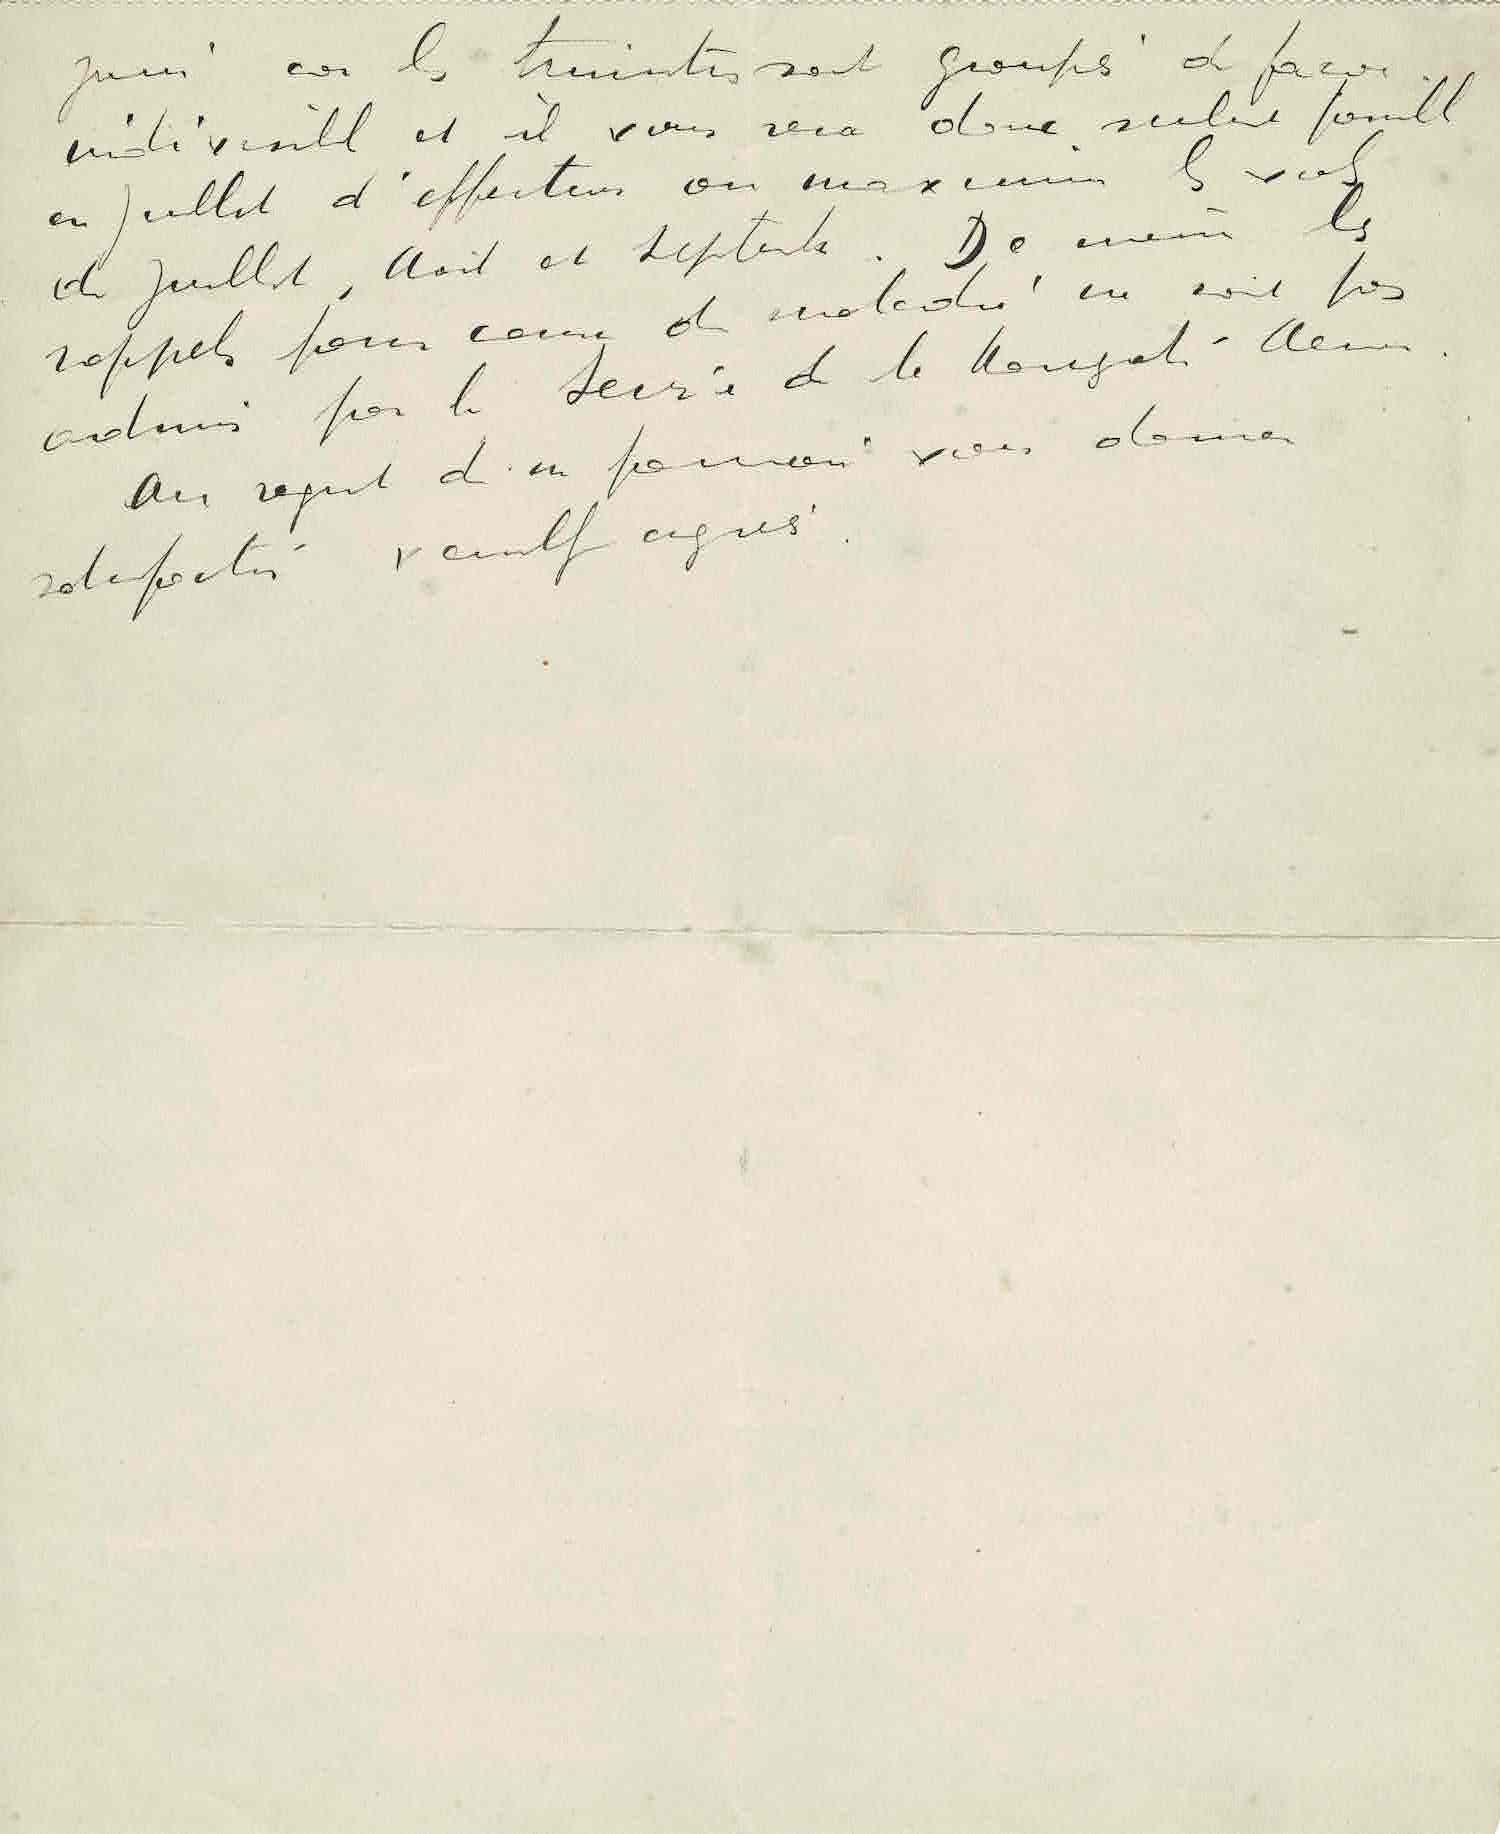 juin car les trimestres sont groupés de façon
indivisible et il vous sera donc seulement possible
en Juillet d'effectuer au maximum les vols
de Juillet, Août et Septembre. De même les
rappels pour cause de maladie ne sont pas
admis par le Service de la Navigation Aérienne.
Au regret de ne pouvoir vous donner
satisfaction veuillez agréer.